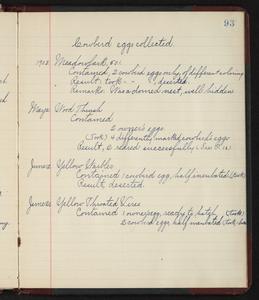 93
Cowbird eggs collected
1908 Meadowlark, 501.
Contained, 2 cowbird eggs only, of different coloring
Result: took - - deserted.
Remarks: Was a domed nest, well hidden
Wood Thrush
Contained
2 owner's eggs
(Took) 4 differently marked cowbird's eggs
Result, reared successfully
June Yellow Warbler
Contained 1 cowbird egg, half incubated (took)
Result, deserted.
June 22 Yellow Throated Vireo
Contained 1 owner's egg, ready to hatch (Took)
2 cowbird eggs half incubated (Took)